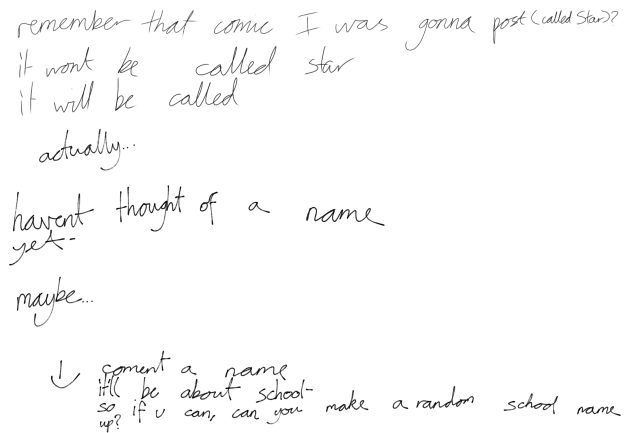 remember that comic I was gonna post (called Star)?
it wont be called star
it will be called
actually...
havent thought of a name
yet-
maybe...
coment a name
it'll be about school-
so if u can, can you make a random school name
up?